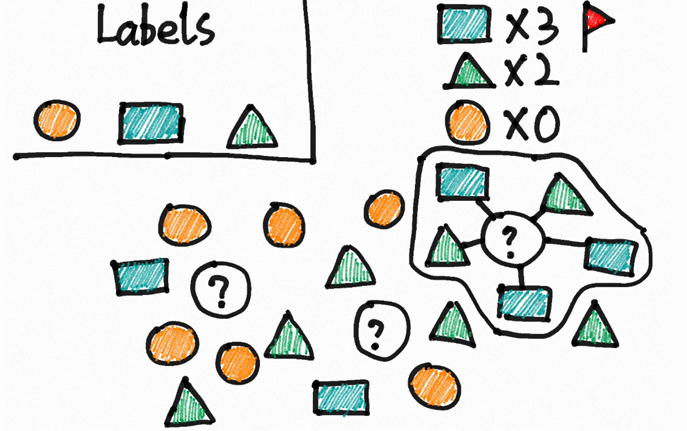 Labels
X3
X2
X0
?
?
?